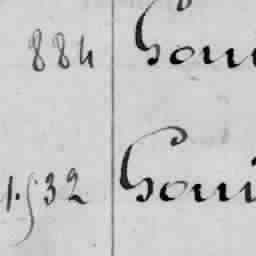 884 Goui
1.532 Goui